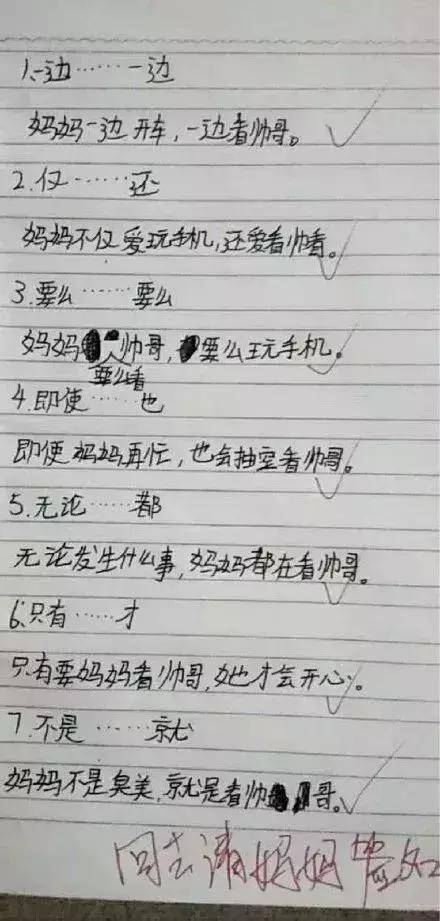 1.一边……一边
妈妈一边开车,一边看帅哥。
2.仅……还
妈妈不仅爱玩手机,还爱看帅看。
3.要么……要么
妈妈要么看帅哥,要么玩手机。
4.即使……也
即使妈妈再忙,也会抽空看帅哥。
5.无论……都
无论发生什么事,妈妈都在看帅哥。
6.只有……才
只有要妈妈看帅哥,她才会开心。
7.不是……就
妈妈不是臭美,就是看帅哥。
回去请妈妈签知